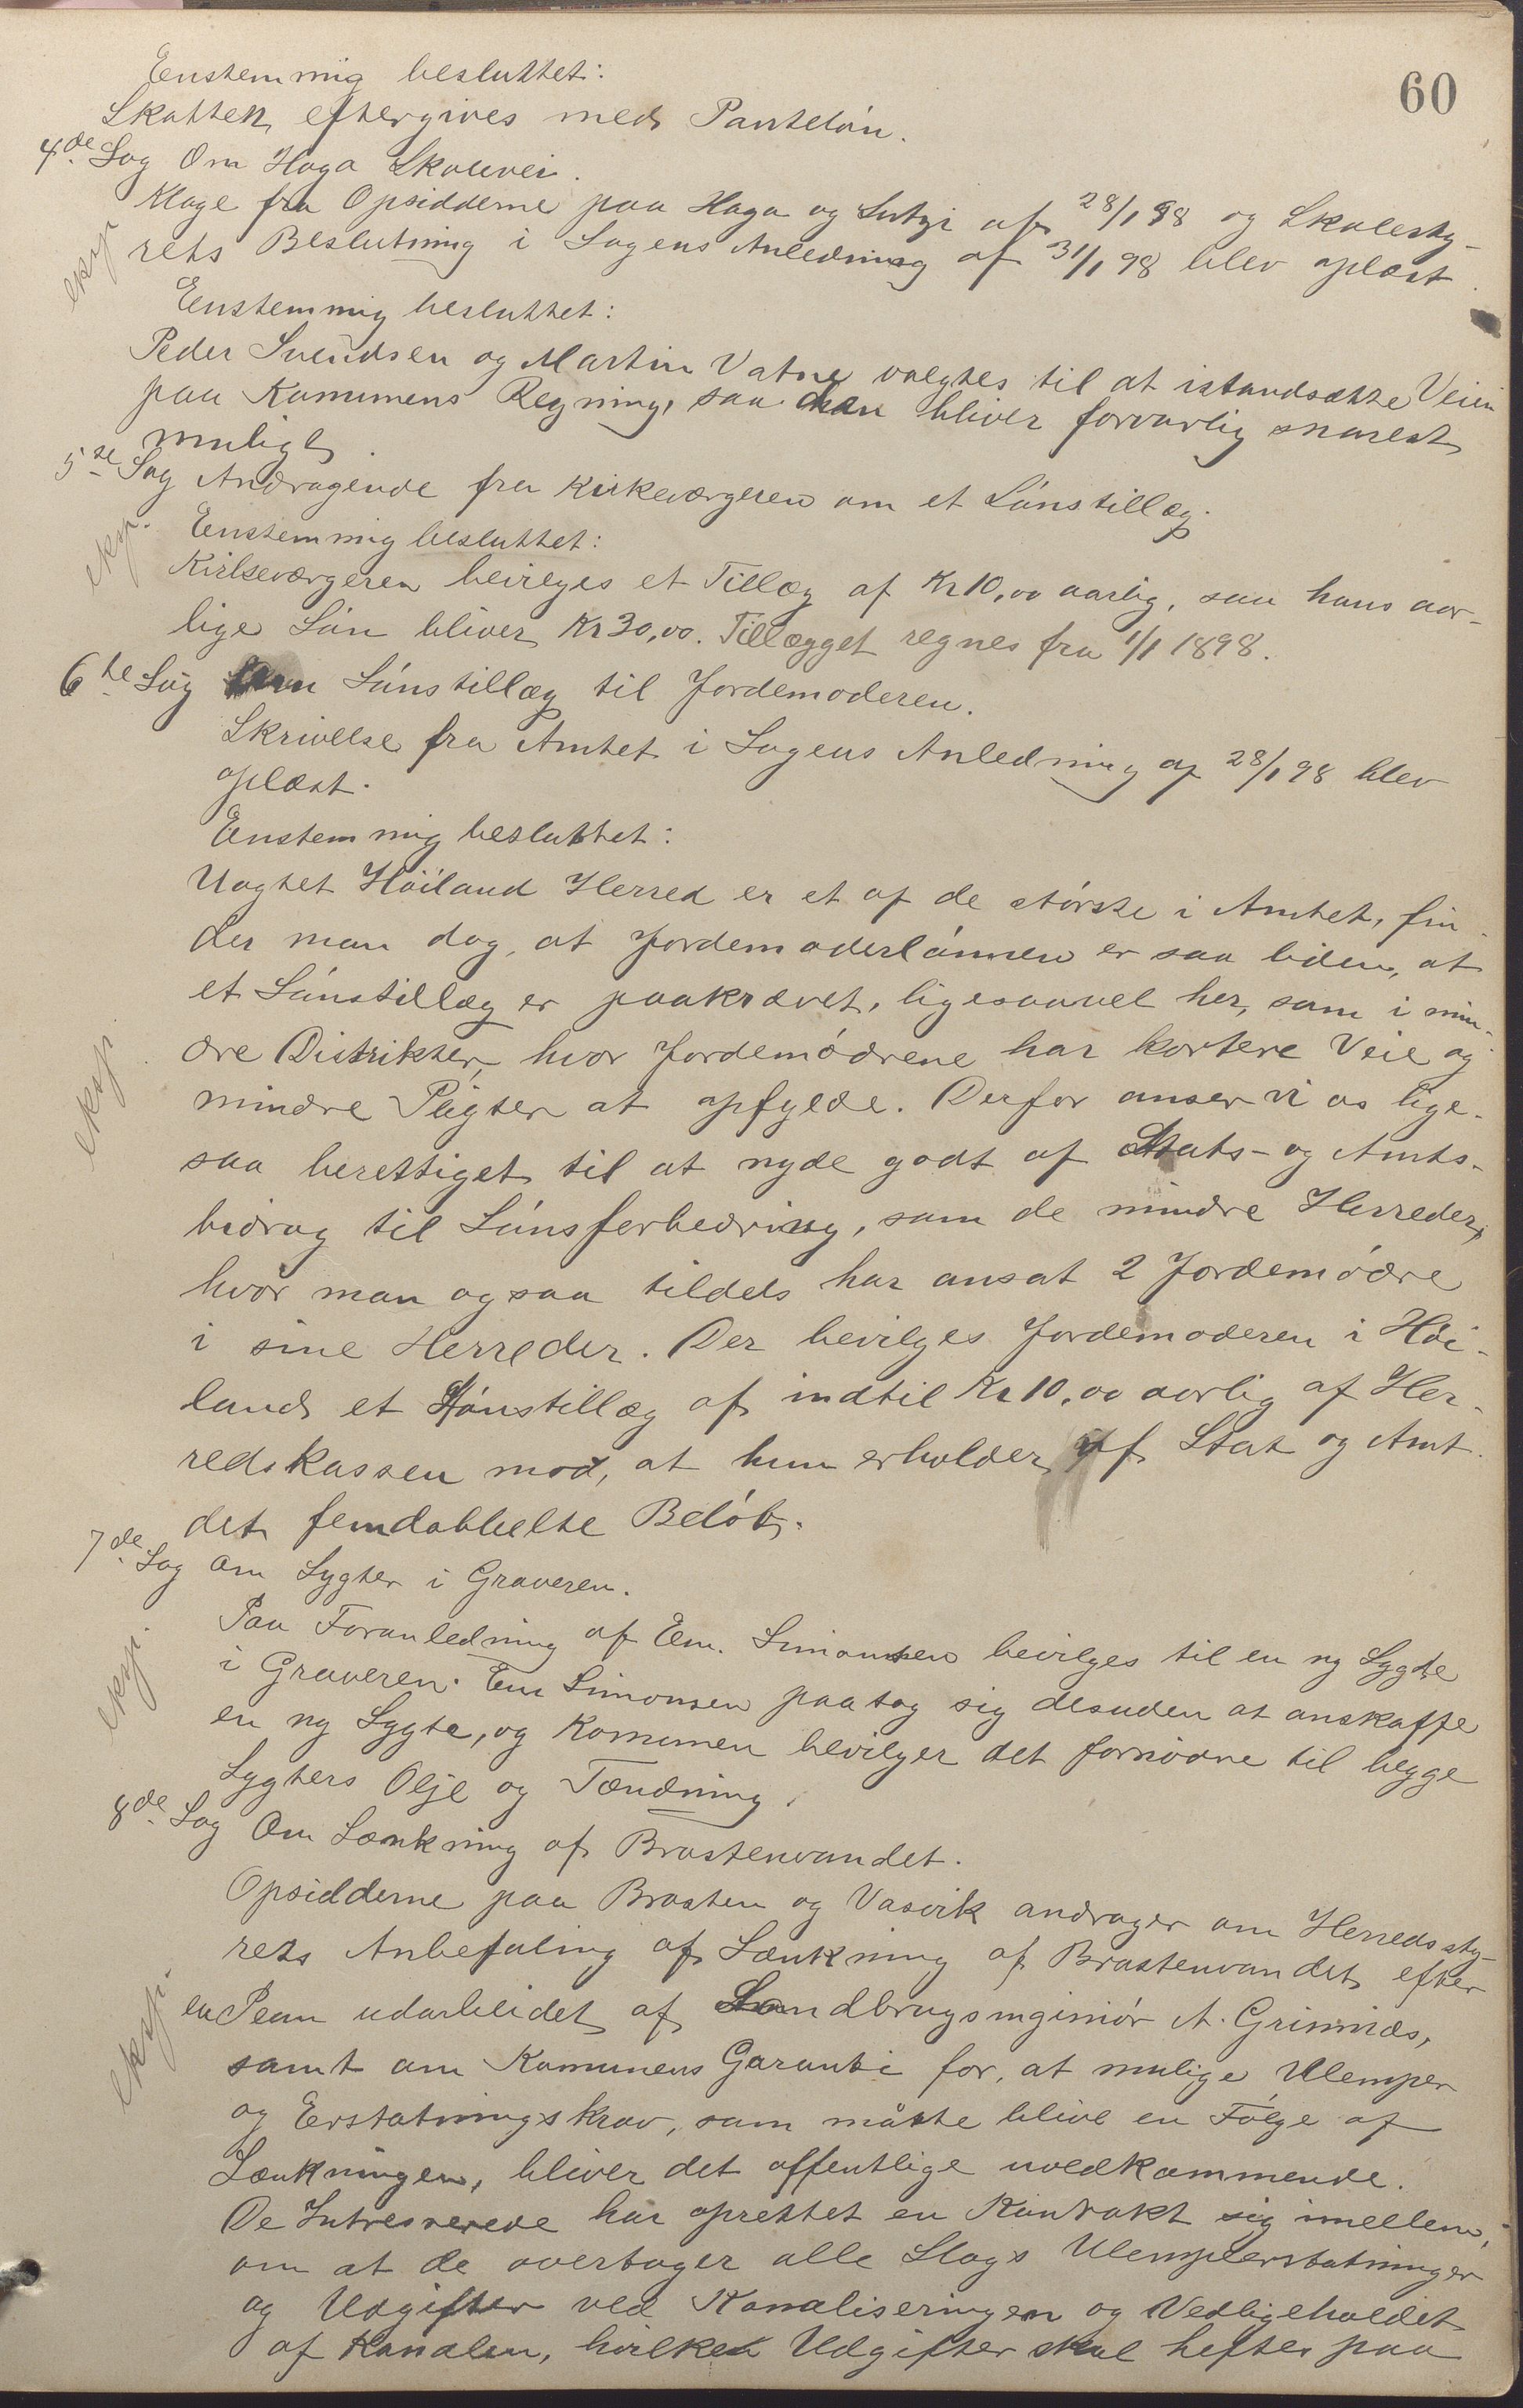 60
Eenstemmig besluttet:
Skatten eftergives med Pantelón.
4de Sag Om Haga Skolevei.
Klage fra Opsidderne paa Haga og Lutsi af 28/1 98 og Skolesty-
eksp
rets Beslutning i Sagens Anledning af 31/1 98 blev oplæst.
Eenstemmig besluttet:
Peder Svendsen og Martin Vatne valgtes til at istandsætte Veien
paa Kommunens Regning, saa den bliver forvarlig snarest
muligt.
5te Sag Andragende fra Kirkeværgeren om et Lónstillæg.
eksp.
Eenstemmig besluttet:
Kirkeværgeren bevilges et Tillæg af Kr 10,00 aarlig, saa hans aar-
lige Lón bliver Kr 30,00. Tillægget regnes fra 1/1 1898.
6te Sag Om Lónstillæg til Jordemoderen.
Skrivelse fra Amtet i Sagens Anledning af 28/1 98 blev
oplæst.
Eenstemmig besluttet:
Uagtet Höiland Herred er et af de stórste i Amtet, fin-
der man dog, at Jordemoderlónnen er saa liden, at
et Lónstillæg er paakrævet, ligesaavel her, som i min-
eksp.
dre Distrikter, hvor Jordemódrene har kortere Veie og
mindre Pligter at opfylde. Derfor anser vi os lige-
saa berettiget til at nyde godt af Stats- og Amts-
bidrag til Lónsforbedring, som de mindre Herreder,
hvor man ogsaa tildels har ansat 2 Jordemódre
i sine Herreder. Der bevilges Jordemoderen i Höi-
land et Lónstillæg af indtil Kr 10,00 aarlig af Her-
redskassen mod, at hun erholder af Stat og Amt
det femdobbelte Belób.
7de Sag Om Lygter i Graveren.
eksp.
Paa Foranledning af Em. Simonsen bevilges til en ny Lygte
i Graveren. Em Simonsen paatog sig desuden at anskaffe
en ny Lygte, og Kommunen bevilger det fornódne til begge
Lygters Olje og Tænding.
8de Sag Om Sænkning af Brastenvandet.
Opsidderne paa Brasten og Vasvik andrager om Herredssty-
rets Anbefaling af Sænkning af Brastenvandet efter
eksp.
en Plan udarbeidet af Landbrugsingeniór A. Grimnæs,
samt om Kommunens Garanti for, at mulige Ulemper
og Erstatningskrav, som måtte blive en Fólge af
Sænkningen, bliver det offentlige uvedkommende.
De Intresserede har oprettet en Kontrakt sig imellem,
om at de overtager alle Slags Ulempeerstatninger
og Udgifter ved Kanaliseringen og Vedligeholdet
af Kanalen, hvilke Udgifter skal heftes paa